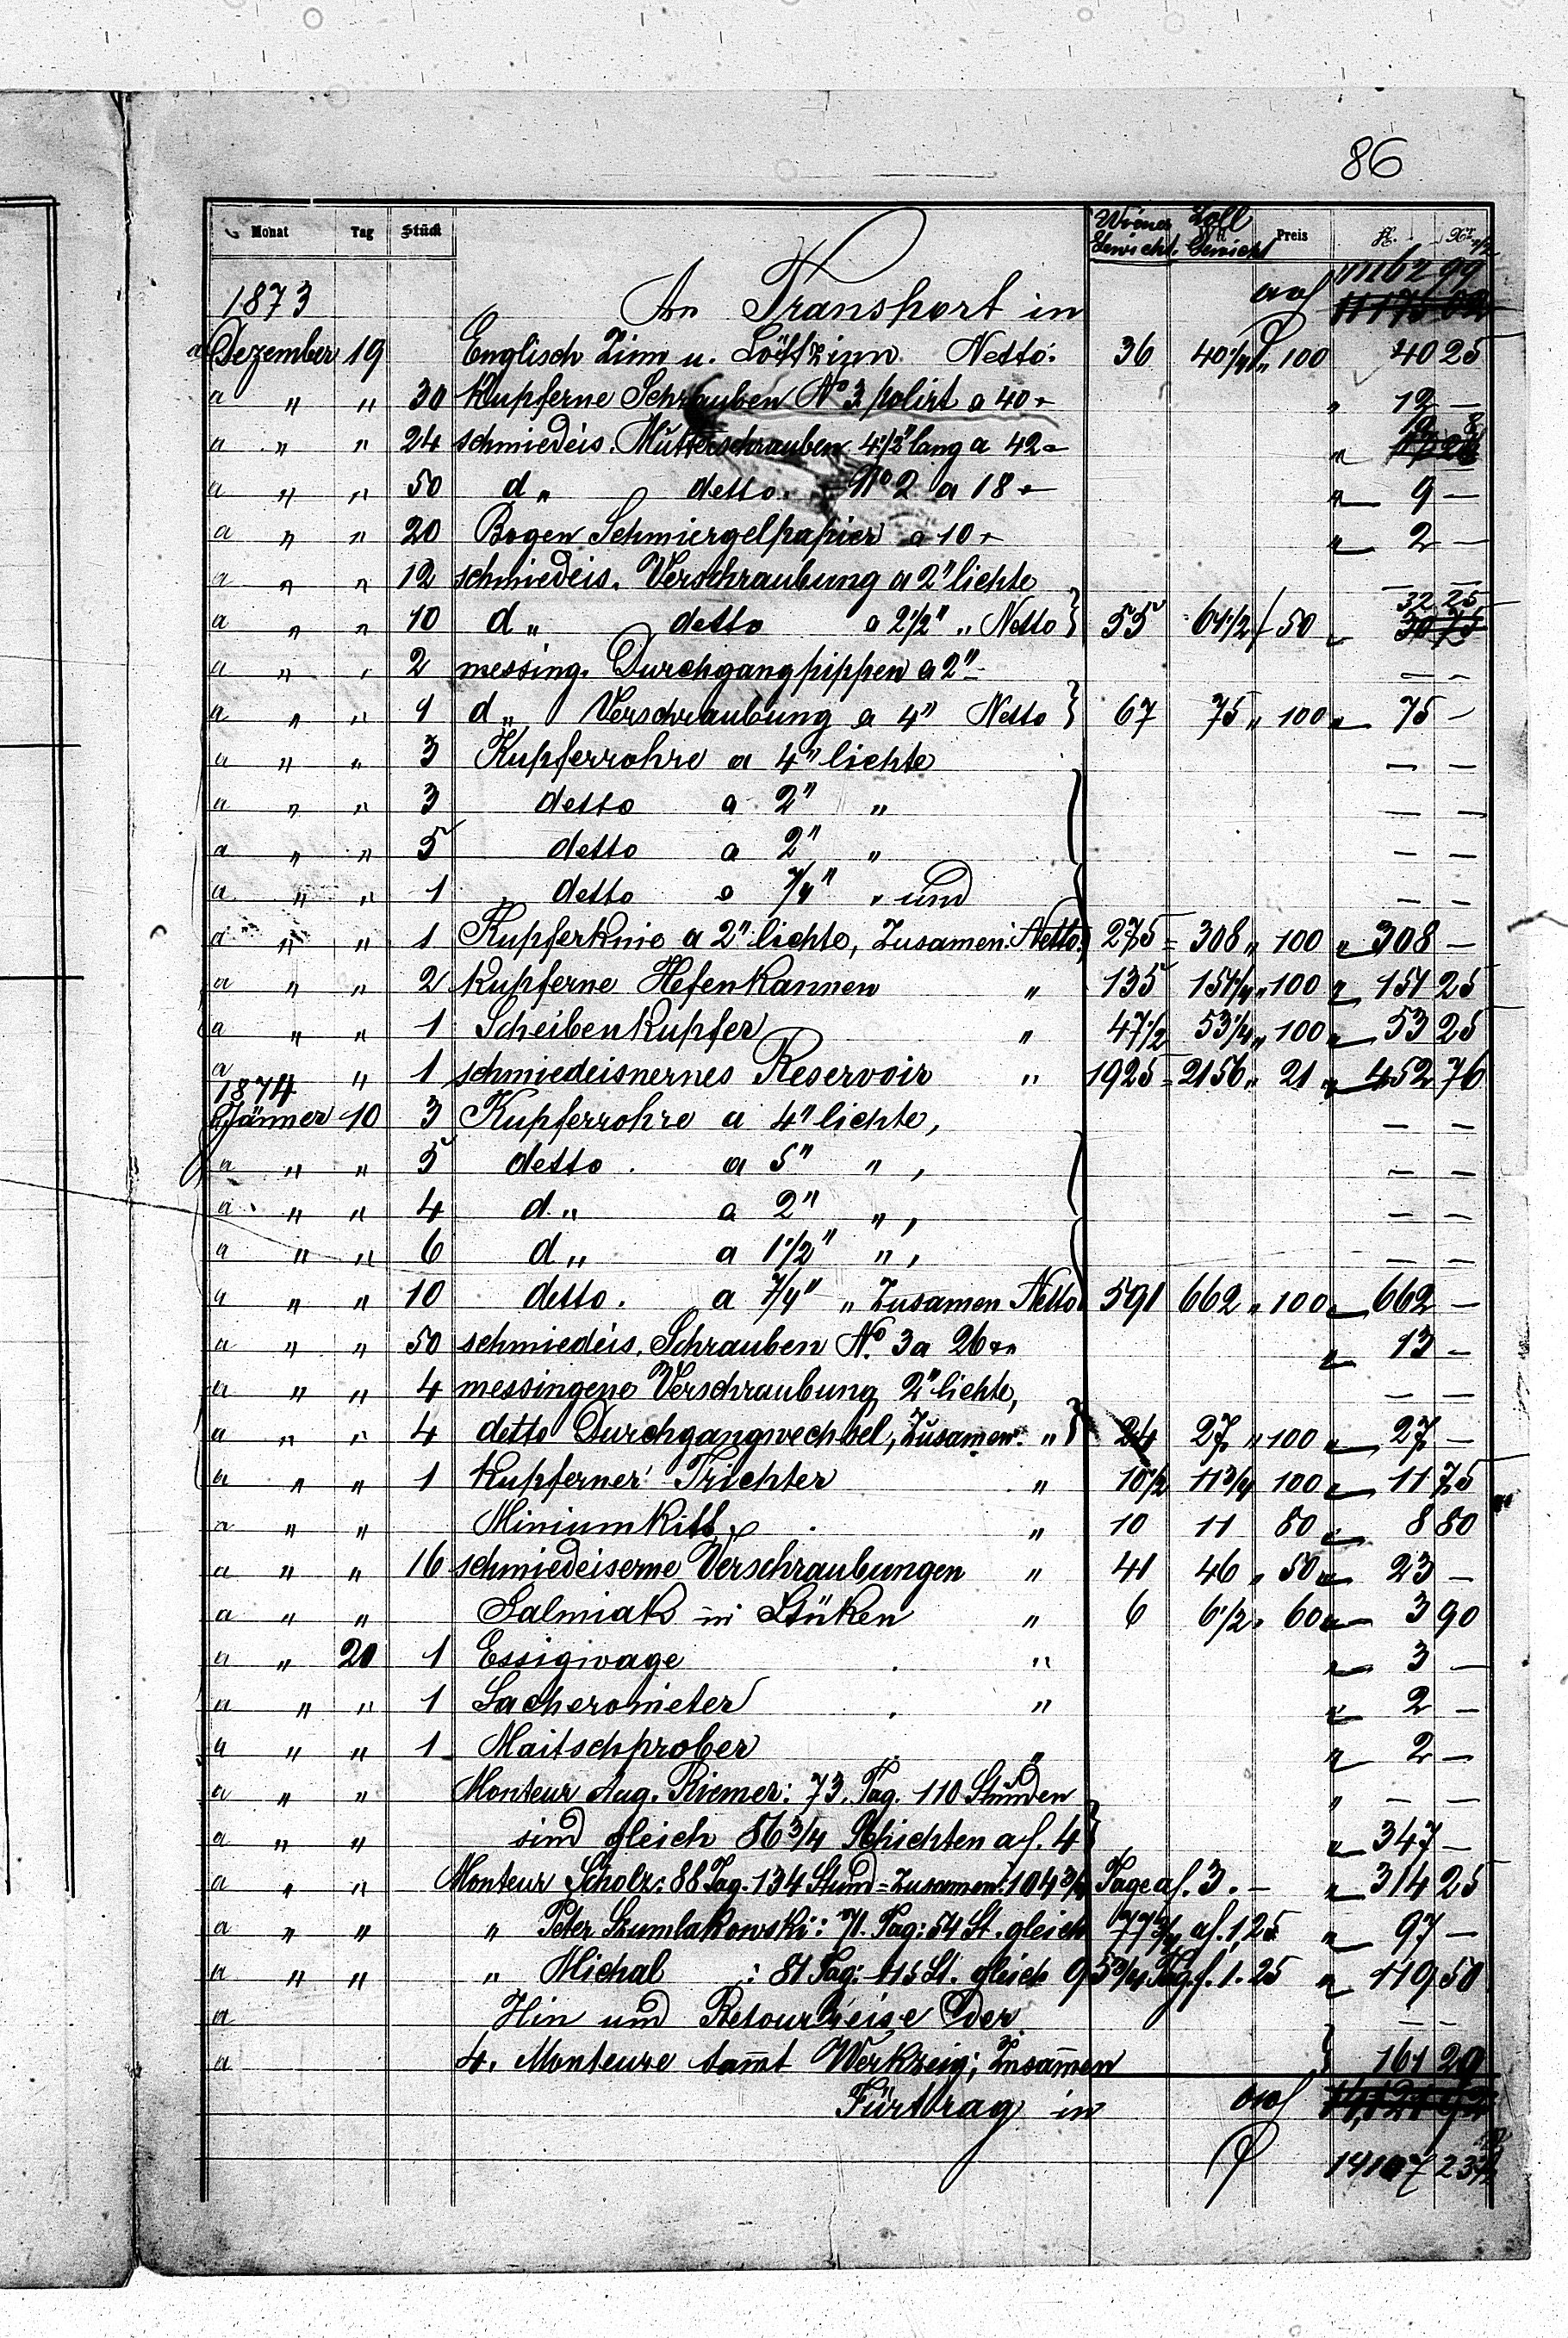 86
Monat Tag Stück Wiener Gewicht. Zoll Gewicht Preis fl. Xr
1873 An Transport in
Dezember 19 Englisch Zinn u. Löttzinn Netto: 36 40 1/4 " 100 40 25
a " " 30 Kupferne Schrauben No 3 polirt a 40 " 12 —
a " " 24 schmiedeis. Mutterschrauben 4 1/2" lang a 42 " 10 8
a " " 50 d " detto. No 2 a 18 " 9 —
a " " 20 Bogen Schmiergelpapier a 10 " 2 —
a " " 12 schmiedeis. Verschraubung a 2" lichte — —
a " " 10 d " detto a 2 1/2" " Netto 55 61 1/2 50 " 32 25
a " " 2 messing. Durchgangpippen a 2" — —
a " " 9 d " Verschraubung a 4" Netto 67 75 " 100 " 75 —
a " " 3 Kupferrohre a 4" lichte — —
a " " 3 detto a 2" " — —
a " " 5 detto a 2" " — —
a " " 1 detto a 7/4" " und — —
a " " 1 Kupferknie a 2" lichte, Zusamen: Netto: 275 = 308 " 100 " 308 —
a " " 2 kupferne Hefenkannen " 135 151 1/4 " 100 " 151 25
a " " 1 Scheibenkupfer " 47 1/2 53 1/4 " 100 " 53 25
a " " 1 schmiedeisnernes Reservoir " 1925 = 2156 " 21 " 452 76
1874
Jänner 10 3 Kupferrohre a 4" lichte, — —
a " " 5 detto. a 5" " , — —
a " " 4 d " a 2" " , — —
a " " 6 d " a 1 1/2" " , — —
a " " 10 detto. a 7/4" " Zusamen Netto 591 662 " 100 " 662 —
a " " 50 schmiedeis. Schrauben No. 3 a 26 " 13 —
a " " 4 messingene Verschraubung 2" lichte, — —
a " " 4 detto Durchgangwechsel, Zusamen: " 24 27 " 100 " 27 —
a " " 1 kupferner Trichter " 10 1/2 11 3/4 100 " 11 75
a " " Miniumkitt " 10 11 80 " 8 80
a " " 16 schmiedeiserne Verschraubungen " 41 46 " 50 " 23 —
a " " Salmiak in Stüken " 6 6 1/2 " 60 " 3 90
a " 20 1 Essigwage " " 3 —
a " " 1 Sacherometer " " 2 —
a " " 1 Maitschprober " " 2 —
a " " Monteur Aug. Riemer: 73. Tag. 110 Stunden " — —
a " " sind gleich 86 3/4 Schichten a f. 4 " 347 —
a " " Monteur Scholz: 88 Tag. 134 Stund = Zusamen: 104 3/4 Tage a f. 3. — " 314 25
a " " " Peter Szumlakowski: 71. Tag: 54 St. gleich 77 3/4 a f. 1,25 " 97 —
a " " " Michal : 81 Tag: 115 St. gleich 95 3/4 Tag. f. 1. 25 " 119 50
a Hin und Retourreise der — —
a 4. Monteure sammt Werkzeig; Zusammen 161 20
Fürttrag in
14107 23 1/2